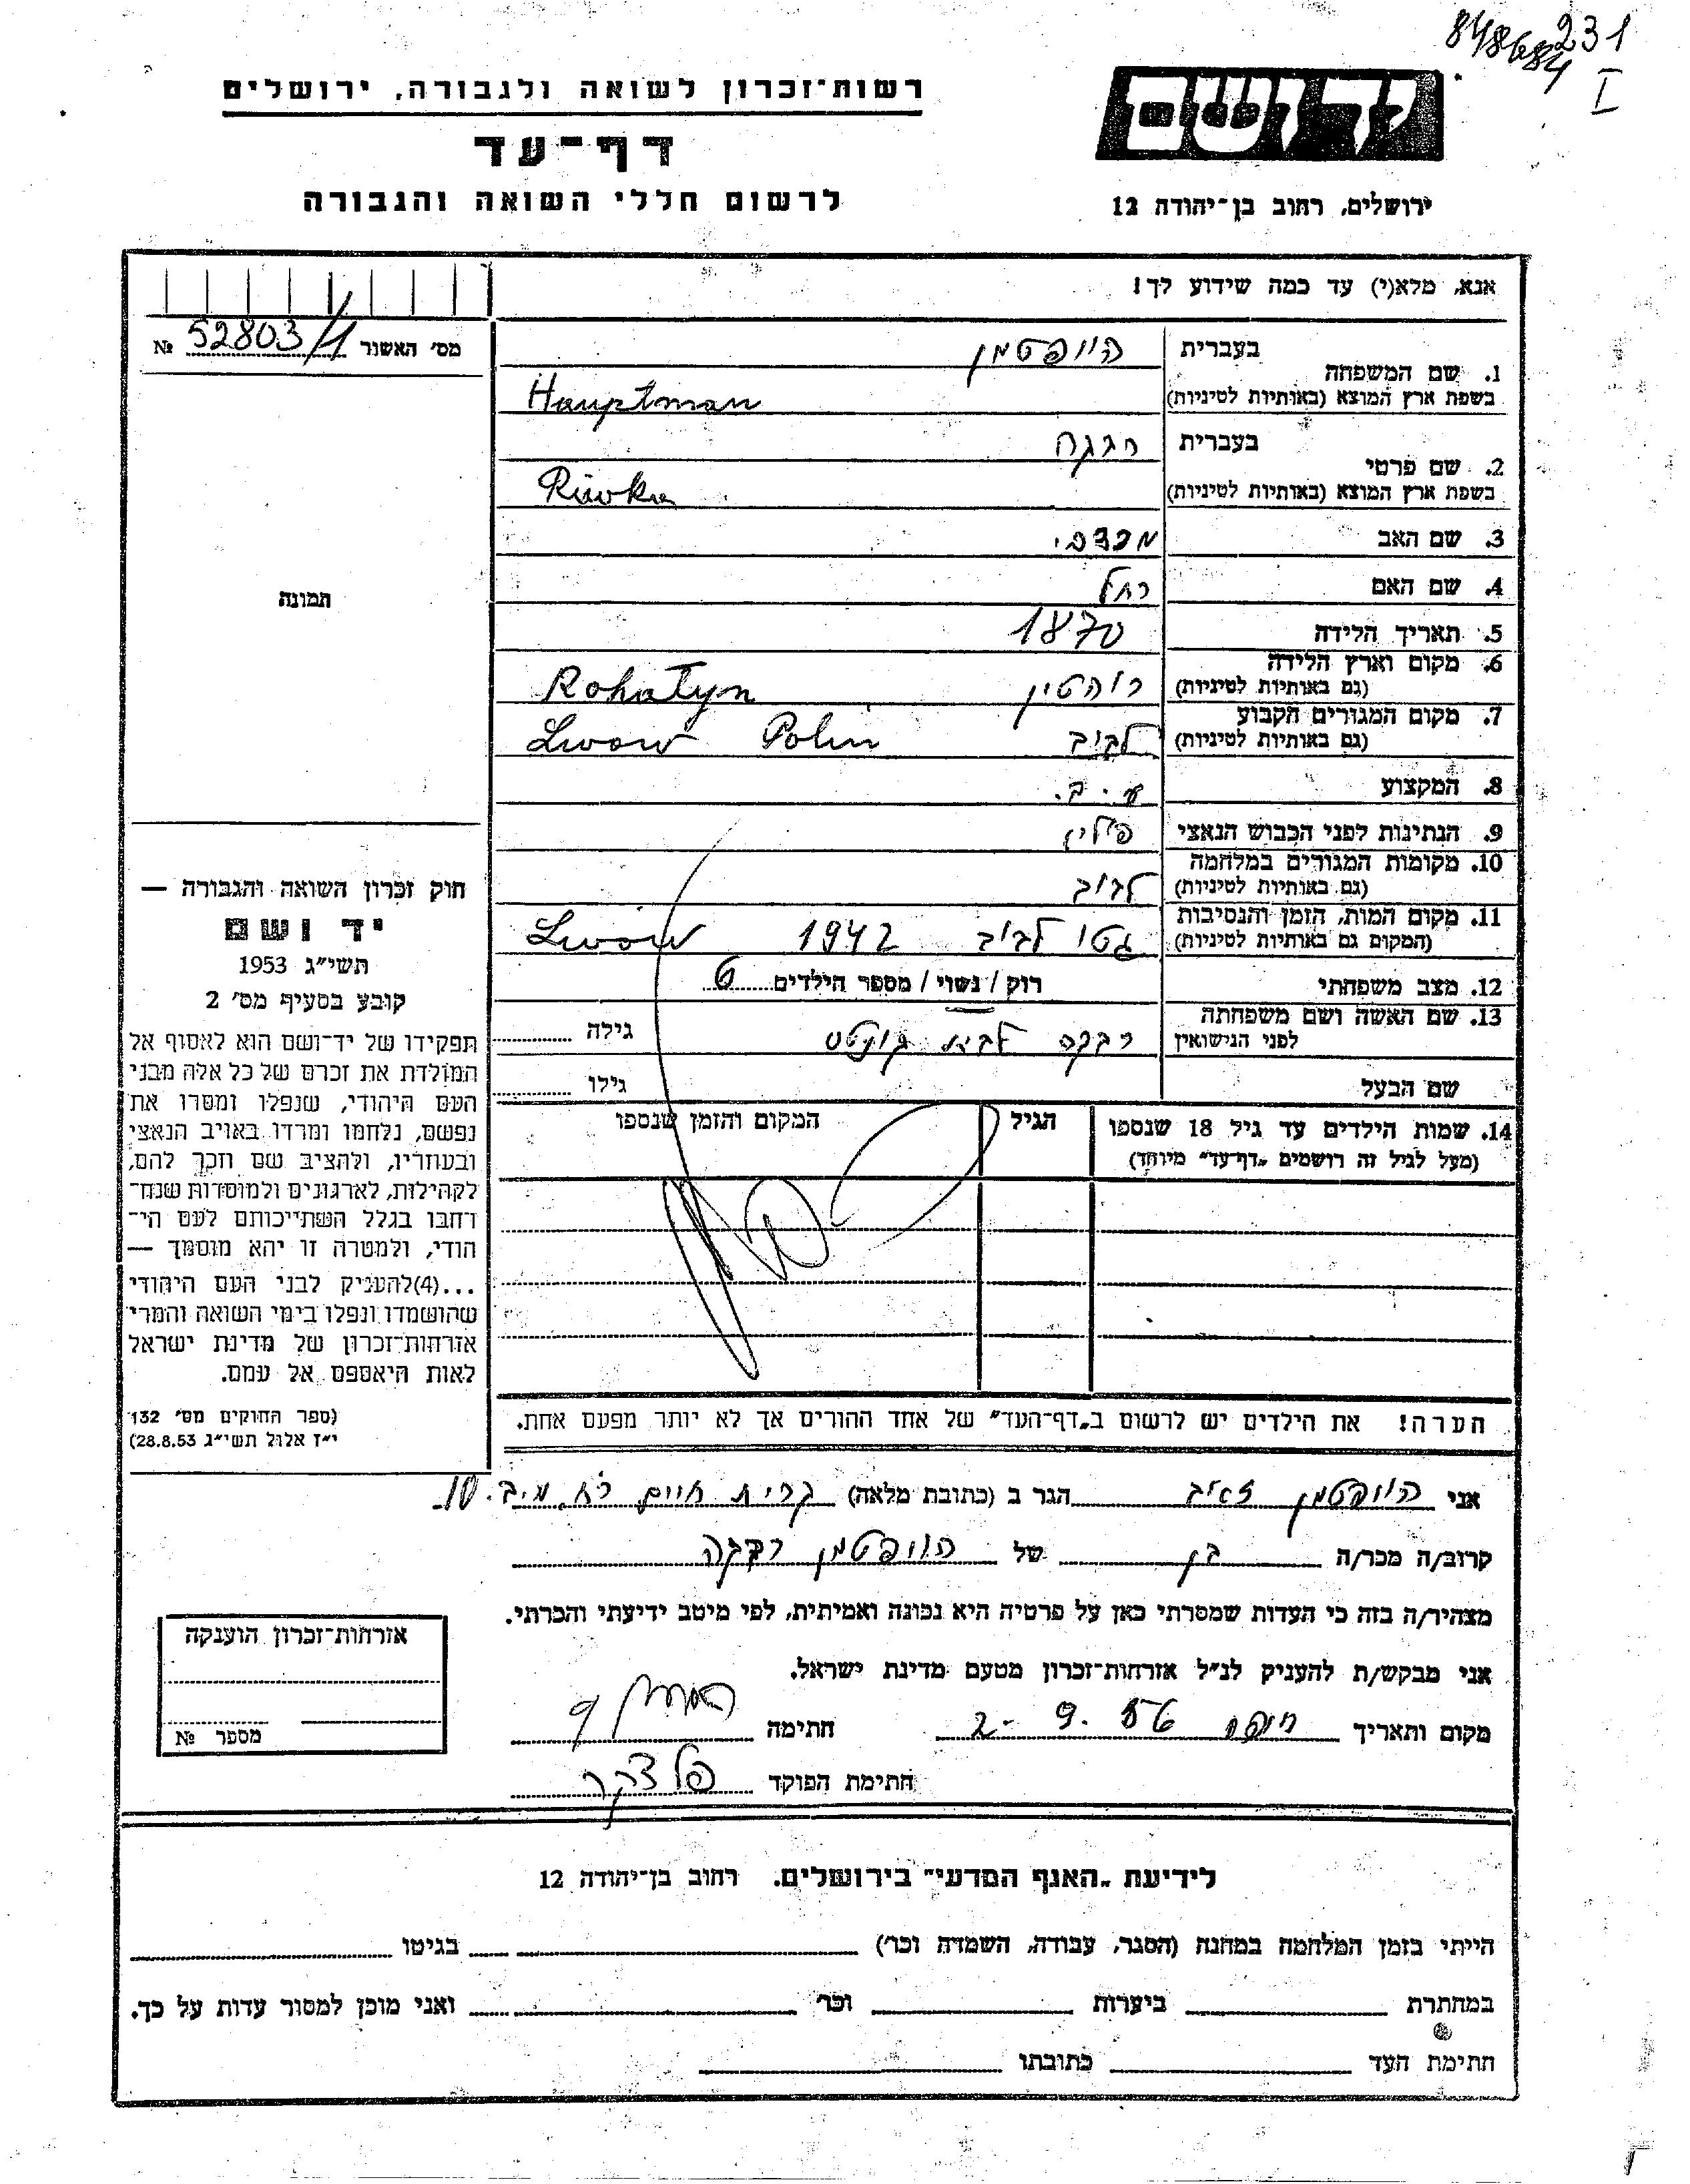 848684 231
I
רשות־זכרון לשואה ולגבורה, ירושלים
דף־עד
לרשום חללי השואה והגבורה
יד ושם
ירושלים, רחוב בן־יהודה 12
אנא, מלא(י) עד כמה שידוע לך!
מס׳ האשור 52803/1 №
1. שם המשפחה
בעברית הויפטמן
בשפת ארץ המוצא (באותיות לטיניות) Hauptman
2. שם פרטי
בעברית רבקה
בשפת ארץ המוצא (באותיות לטיניות) Riwka
3. שם האב מרדכי
4. שם האם רחל
5. תאריך הלידה 1870
6. מקום וארץ הלידה
(גם באותיות לטיניות) רוהטין Rohatyn
7. מקום המגורים הקבוע
(גם באותיות לטיניות) לבוב Lwow Polin
8. המקצוע ע. ב.
9. הנתינות לפני הכבוש הנאצי פולין
10. מקומות המגורים במלחמה
(גם באותיות לטיניות) לבוב
11. מקום המות, הזמן והנסיבות
(המקום גם באותיות לטיניות) גטו לבוב 1942 Lwów
12. מצב משפחתי רוק / נשוי / מספר הילדים 6
13. שם האשה ושם משפחתה
לפני הנישואין רבקה לבית גילה
שם הבעל גילו
14. שמות הילדים עד גיל 18 שנספו
(מעל לגיל זה רושמים „דף־עד״ מיוחד)
הגיל
המקום והזמן שנספו
הערה! את הילדים יש לרשום ב„דף־העד״ של אחד ההורים אך לא יותר מפעם אחת.
תמונה
חוק זכרון השואה והגבורה —
יד ושם
תשי״ג 1953
קובע בסעיף מס׳ 2
תפקידו של יד־ושם הוא לאסוף אל
המולדת את זכרם של כל אלה מבני
העם היהודי, שנפלו ומסרו את
נפשם, נלחמו ומרדו באויב הנאצי
ובעוזריו, ולהציב שם וזכר להם,
לקהילות, לארגונים ולמוסדות שנח־
רחבו בגלל השתייכותם לעם הי־
הודי, ולמטרה זו יהא מוסמך —
...(4)להעניק לבני העם היהודי
שהושמדו ונפלו בימי השואה והמרי
אזרחות־זכרון של מדינת ישראל
לאות היאספם אל עמם.
(ספר החוקים מס׳ 132
י״ז אלול תשי״ג 28.8.53)
אני הויפטמן זאיב הגר ב (כתובת מלאה) קרית חיים רח. מ.ב. 10
קרוב/ה מכר/ה בן של הויפטמן רבקה
מצהיר/ה בזה כי העדות שמסרתי כאן על פרטיה היא נכונה ואמיתית, לפי מיטב ידיעתי והכרתי.
אני מבקש/ת להעניק לנ״ל אזרחות־זכרון מטעם מדינת ישראל.
מקום ותאריך חיפה 2-9. חתימה
חתימת הפוקד
אזרחות־זכרון הוענקה
מספר №
לידיעת „האגף המדעי״ בירושלים. רחוב בן־יהודה 12
הייתי בזמן המלחמה במחנה (הסגר, עבודה, השמדה וכר׳) בגיטו
במחתרת ביערות וכר׳ ואני מוכן למסור עדות על כך.
חתימת העד כתובתו